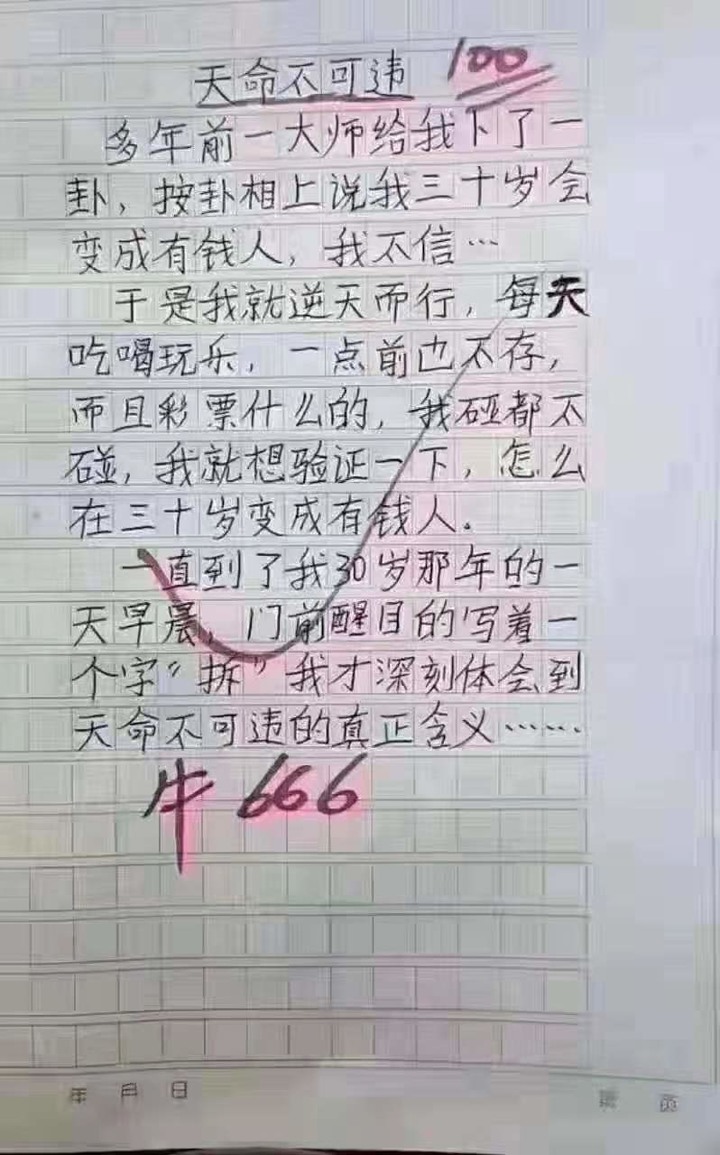 天命不可违 100
多年前一大师给我下了一
卦，按卦相上说我三十岁会
变成有钱人，我不信…
于是我就逆天而行，每天
吃喝玩乐，一点前也不存，
而且彩票什么的，我碰都不
碰，我就想验证一下，怎么
在三十岁变成有钱人。
一直到了我30岁那年的一
天早晨，门前醒目的写着一
个字“拆”我才深刻体会到
天命不可违的真正含义……
牛 666
年 月 日